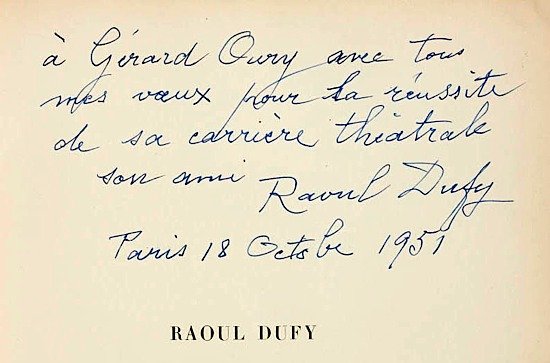 à Gérard Oury avec tous
mes vœux pour sa réussite
de sa carrière théatrale
son ami Raoul Dufy
Paris 18 Octbe 1951
RAOUL DUFY